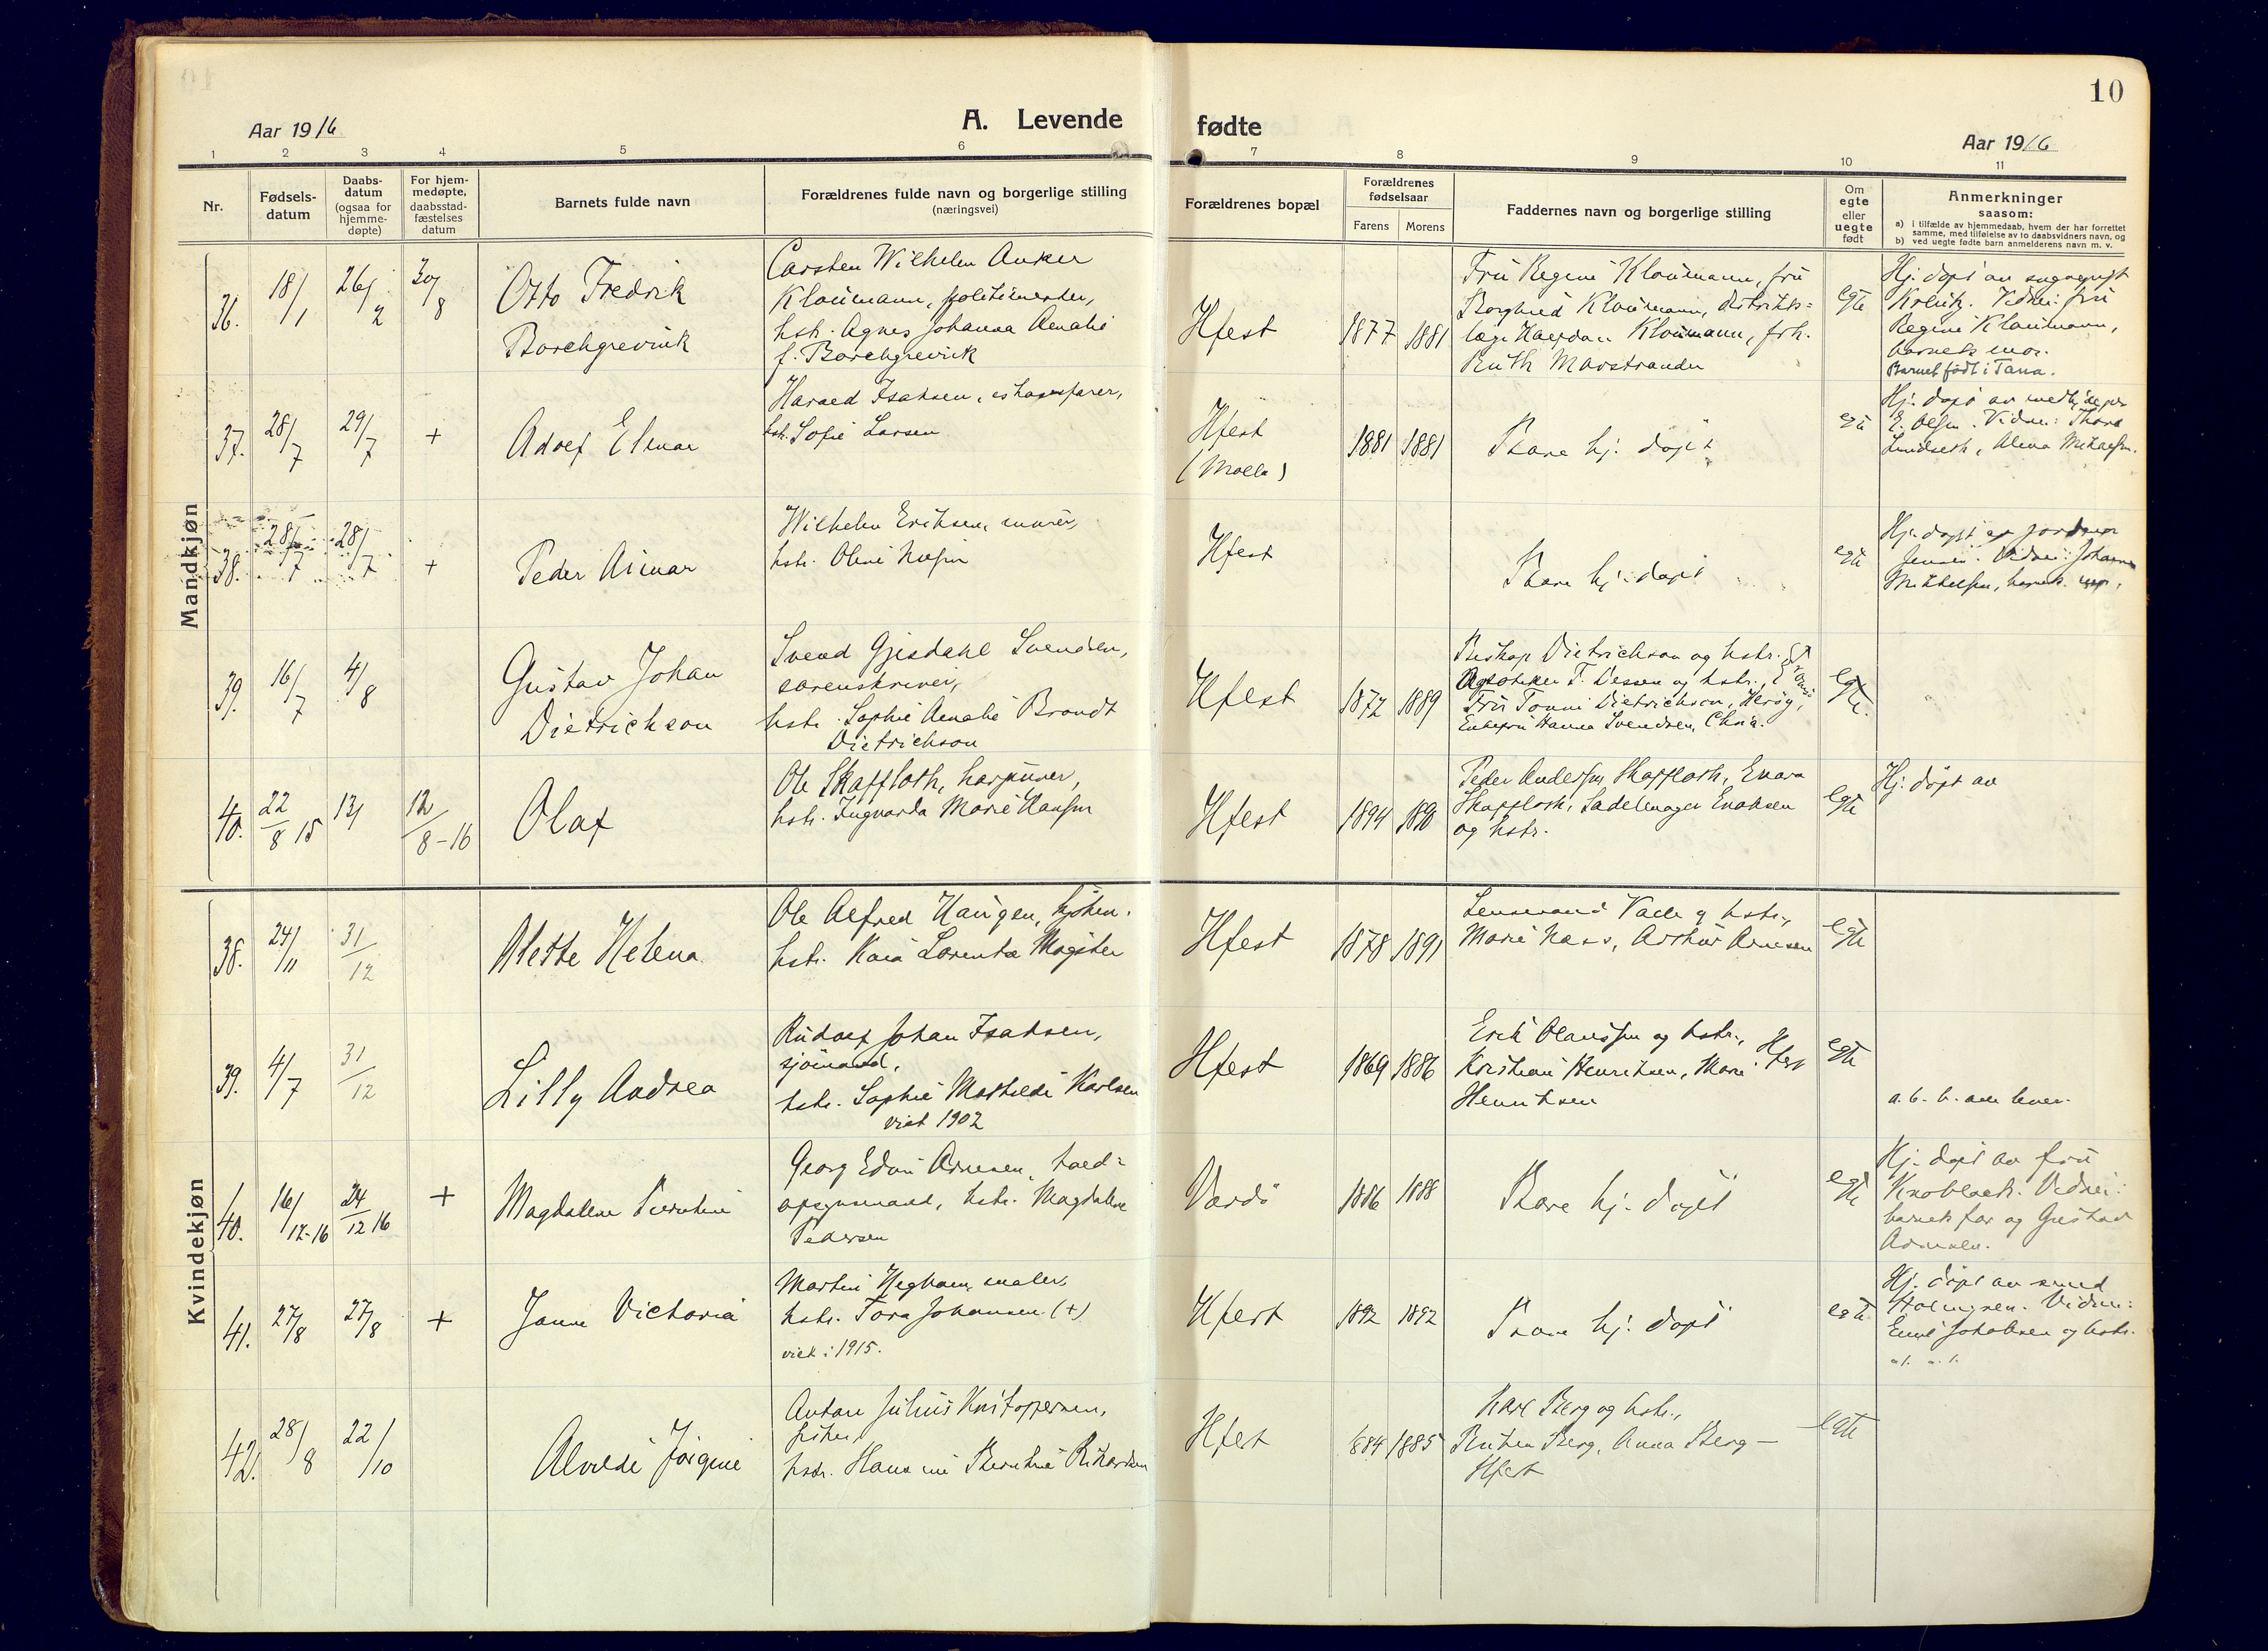 10
Aar 1916
A. Levende
fødte
Aar 1916
1 2 3 4 5 6 7 8 9 10 11
Nr.
Fødsels-
datum
Daabs-
datum
(ogsaa for
hjemme-
døpte)
For hjem-
medøpte,
daabsstad-
fæstelses
datum
Barnets fulde navn
Forældrenes fulde navn og borgerlige stilling
(næringsvei)
Forældrenes bopæl
Forældrenes
fødselsaar
Farens Morens
Faddernes navn og borgerlige stilling
Om
egte
eller
uegte
født
Anmerkninger
saasom:
a) i tilfælde av hjemmedaab, hvem der har forrettet
samme, med tilføielse av to daabsvidners navn, og
b) ved uegte fødte barn anmelderens navn m. v.
Mandkjøn
36. 18/1 26/2 30/8
Otto Fredrik
Borchgrevink
Carsten Wilhelm Anker
Kloumann, politimester,
hstr. Agnes Johanna Amalie
f. Borchgrevink
Hfest
1877 1881
Fru Regine Kloumann, fru
Borghild Kloumann, distrikts=
læge Kloumann, frk.
Ruth Marstrander
egte
Hj. døpt av
Vidner: fru
Regine Kloumann,
barnets mor.
Barnet født i Tana.
37. 28/7 29/7 +
Adolf Elmar
Harald Isaksen, ishavsfarer,
hstr. Sofie Larsen
Hfest
(Molla)
1881 1881
Bare hj. døpt
egte
Hj. døpt av
E. Olsen. Vidner: Thora
Lundseth,
38. 28/7 28/7 +
Peder Aimar
Wilhelm Eriksen, murer,
hstr. Oline
Hfest
Bare hj. døpt
egte
Hj. døpt av jordmor
Jensen. Vidner: Johanne
Mikkelsen, barnets mor.
39. 16/7 4/8
Gustav Johan
Dietrichson
Svend Gjesdahl Svendsen,
sorenskriver,
hstr. Sophie Amalie Brandt
Dietrichson
Hfest
1872 1889
Biskop Dietrichson og hstr.
Apotheker F. Dessen og hstr.,
Fru Tonni Dietrichson,
Enkefru Hanna Svendsen, Chr.a.
egte.
40. 22/8 15 13/ 12/8-16
Olaf
Ole Skafloth, harpuner,
hstr. Ingvarda Marie Hansen
Hfest
1894 1890
Peder Andersen Skafloth,
Skafloth, Sadelmager
og hstr.
egte
Hj. døpt av
Kvindekjøn
38. 24/11 31/12
Alette Helena
Ole Alfred Haugen,
hstr. Kaia Lorentze Magister
Hfest
1878 1891
og hstr.,
Marie Arthur Arnesen
egte
39. 4/7 31/12
Lilly Andrea
Rudolf Johan Isaksen,
sjømand,
hstr. Sophie Mathilde Karlsen
viet 1902
Hfest
1869 1886
Erik Olaussen og hstr.,
Kristian Henriksen, Marie Hfest
Henriksen
egte
a. b. b. alle lever.
40. 16/12-16 24/12 16 +
Magdalene Berntine
Georg Edvin Arnesen,
opsynsmand, hstr. Magdalene
Pedersen
Vardø
1886 1888
Bare hj. døpt
egte
Hj. døpt av fru
Knoblock. Vidner:
barnets far og Gustav
Arnesen.
41. 27/8 27/8 +
Janne Victoria
Martin Heghom, maler,
hstr. Tora Johansen (+)
viet i 1915.
Hfest
1892 1892
Bare hj. døpt
egte
Hj. døpt av smed
Holmgren. Vidner:
Emil Jakobsen og hstr.
42. 28/8 22/10
Alvilde Jørgine
Anton Julius Kristoffersen,
fisker,
hstr. Hansine Berntine Rikardsen
Hfest
1884 1885
Karl Berg og hstr.,
Berg, Anna Berg –
Hfest
egte